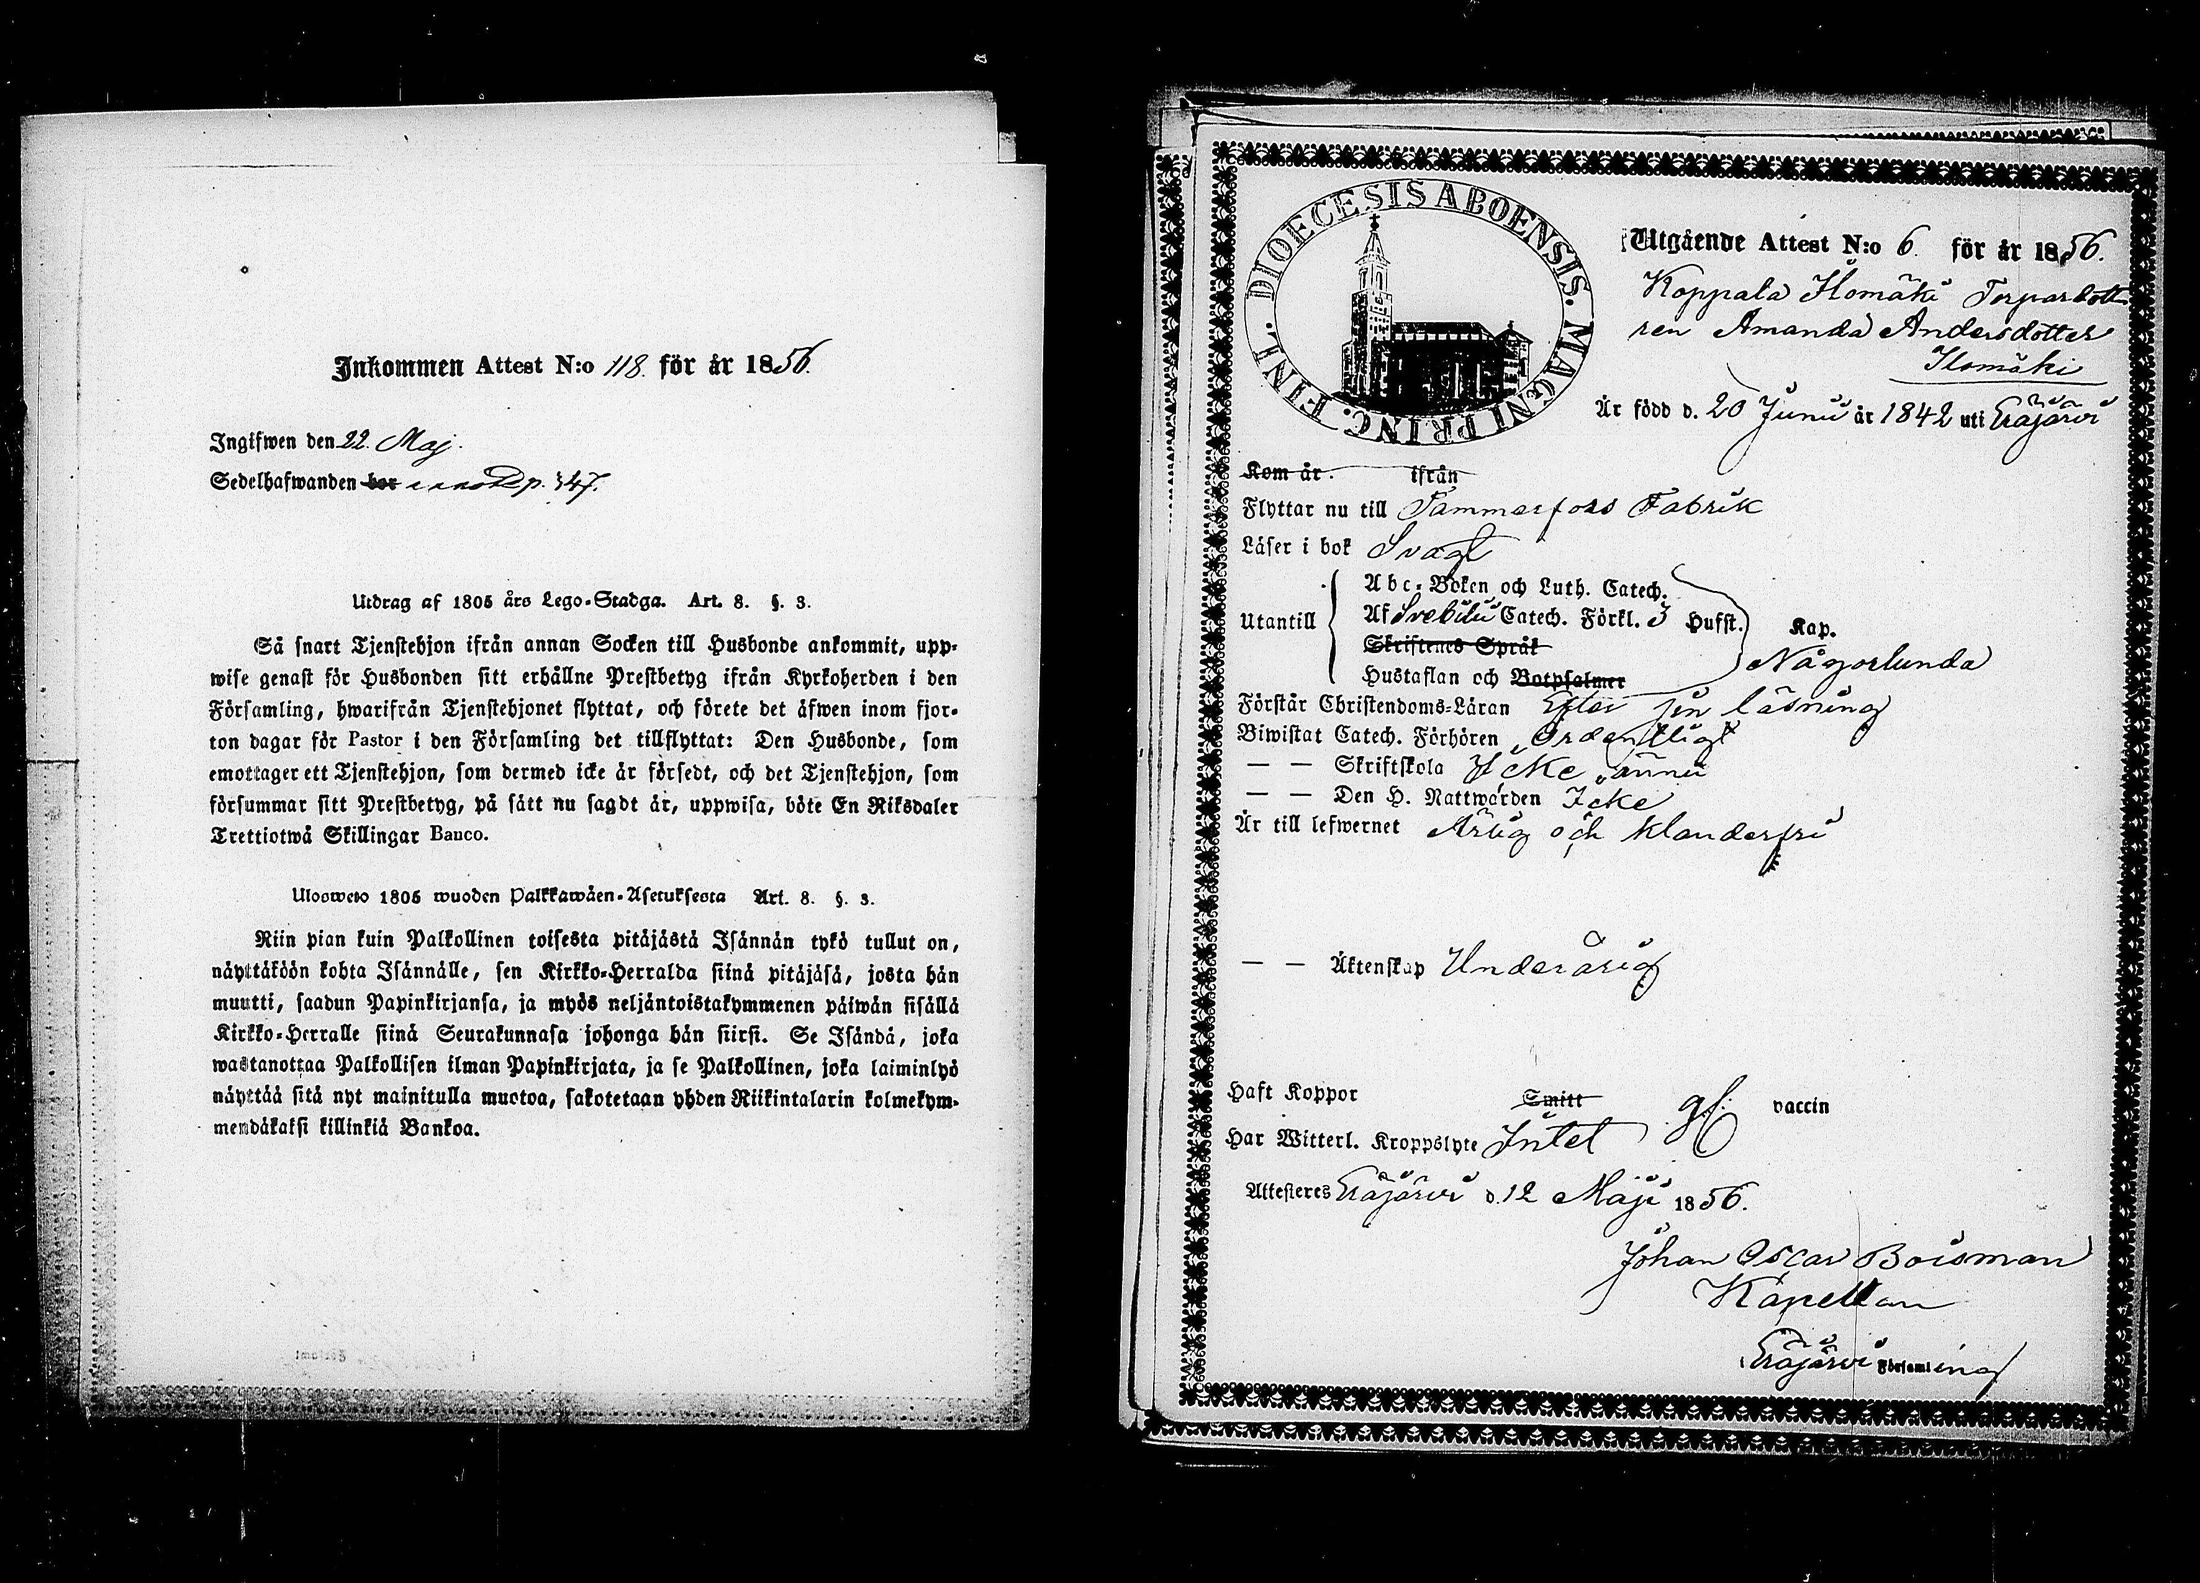 Inkommen Attest N:o 118. för år 1856.
Ingifwen den 22. Maj.
Sedelhafwanden bor p. 347.
Utdrag af 1805 års Lego-Stadga. Art. 8. §. 3.
Så snart Tjenstehjon ifrån annan Socken till Husbonde ankommit, upp-
wise genast för Husbonden sitt erhållne Prestbetyg ifrån Kyrkoherden i den
Församling, hwarifrån Tjenstehjonet flyttat, och förete det äfwen inom fjor-
ton dagar för Pastor i den Församling det tillflyttat: Den Husbonde, som
emottager ett Tjenstehjon, som dermed icke är försedt, och det Tjenstehjon, som
försummar sitt Prestbetyg, på sätt nu sagdt är, uppwisa, böte En Riksdaler
Trettiotwå Skillingar Banco.
Ulosweto 1805 wuoden Palkkawäen-Asetuksesta Art. 8. §. 3.
Niin pian kuin Palkollinen toisesta pitäjästä Isännän tykö tullut on,
näyttäköön kohta Isännälle, sen Kirkko-Herralda siinä pitäjäsä, josta hän
muutti, saadun Papinkirjansa, ja myös neljäntoistakymmenen päiwän sisällä
Kirkko-Herralle siinä Seurakunnasa johonga hän siirsi. Se Isändä, joka
wastanottaa Palkollisen ilman Papinkirjata, ja se Palkollinen, joka laiminlyö
näyttää sitä nyt mainitulla muotoa, sakotetaan yhden Riikintalarin kolmekym-
mendäkaksi killinkiä Bankoa.
DIOECESIS ABOENSIS. MAGNI PRINC. FINL.
Utgående Attest N:o 6. för år 1856.
Koppala Ilomäki Torpardott
ren Amanda Andersdotter
Ilomäki
Är född d. 20 Junii år 1842 uti Eräjärvi
Kom år. ifrån
Flyttar nu till Tammerfors Fabrik
Läser i bok Svagt
Utantill
Abc-Boken och Luth. Catech.
Af Svebilii Catech. Förkl. 3 Hufst. Kap.
Skriftenes Språk
Hustaflan och Botpsalmer
Någorlunda
Förstår Christendoms-Läran Efter sin läsning
Biwistat Catech. Förhören Ordentligt
— — Skriftskola Icke ännu
— — Den H. Nattwarden Icke
Är till lefwernet Ärlig och klanderfri
— — Äktenskap Underårig
Haft Koppor Smitt gf. vaccin
Har Witterl. Kroppslyte Intet
Attesteres Eräjärvi d. 12 Maji 1856.
Johan Oscar Boisman
Kapellan
Eräjärvi Församling